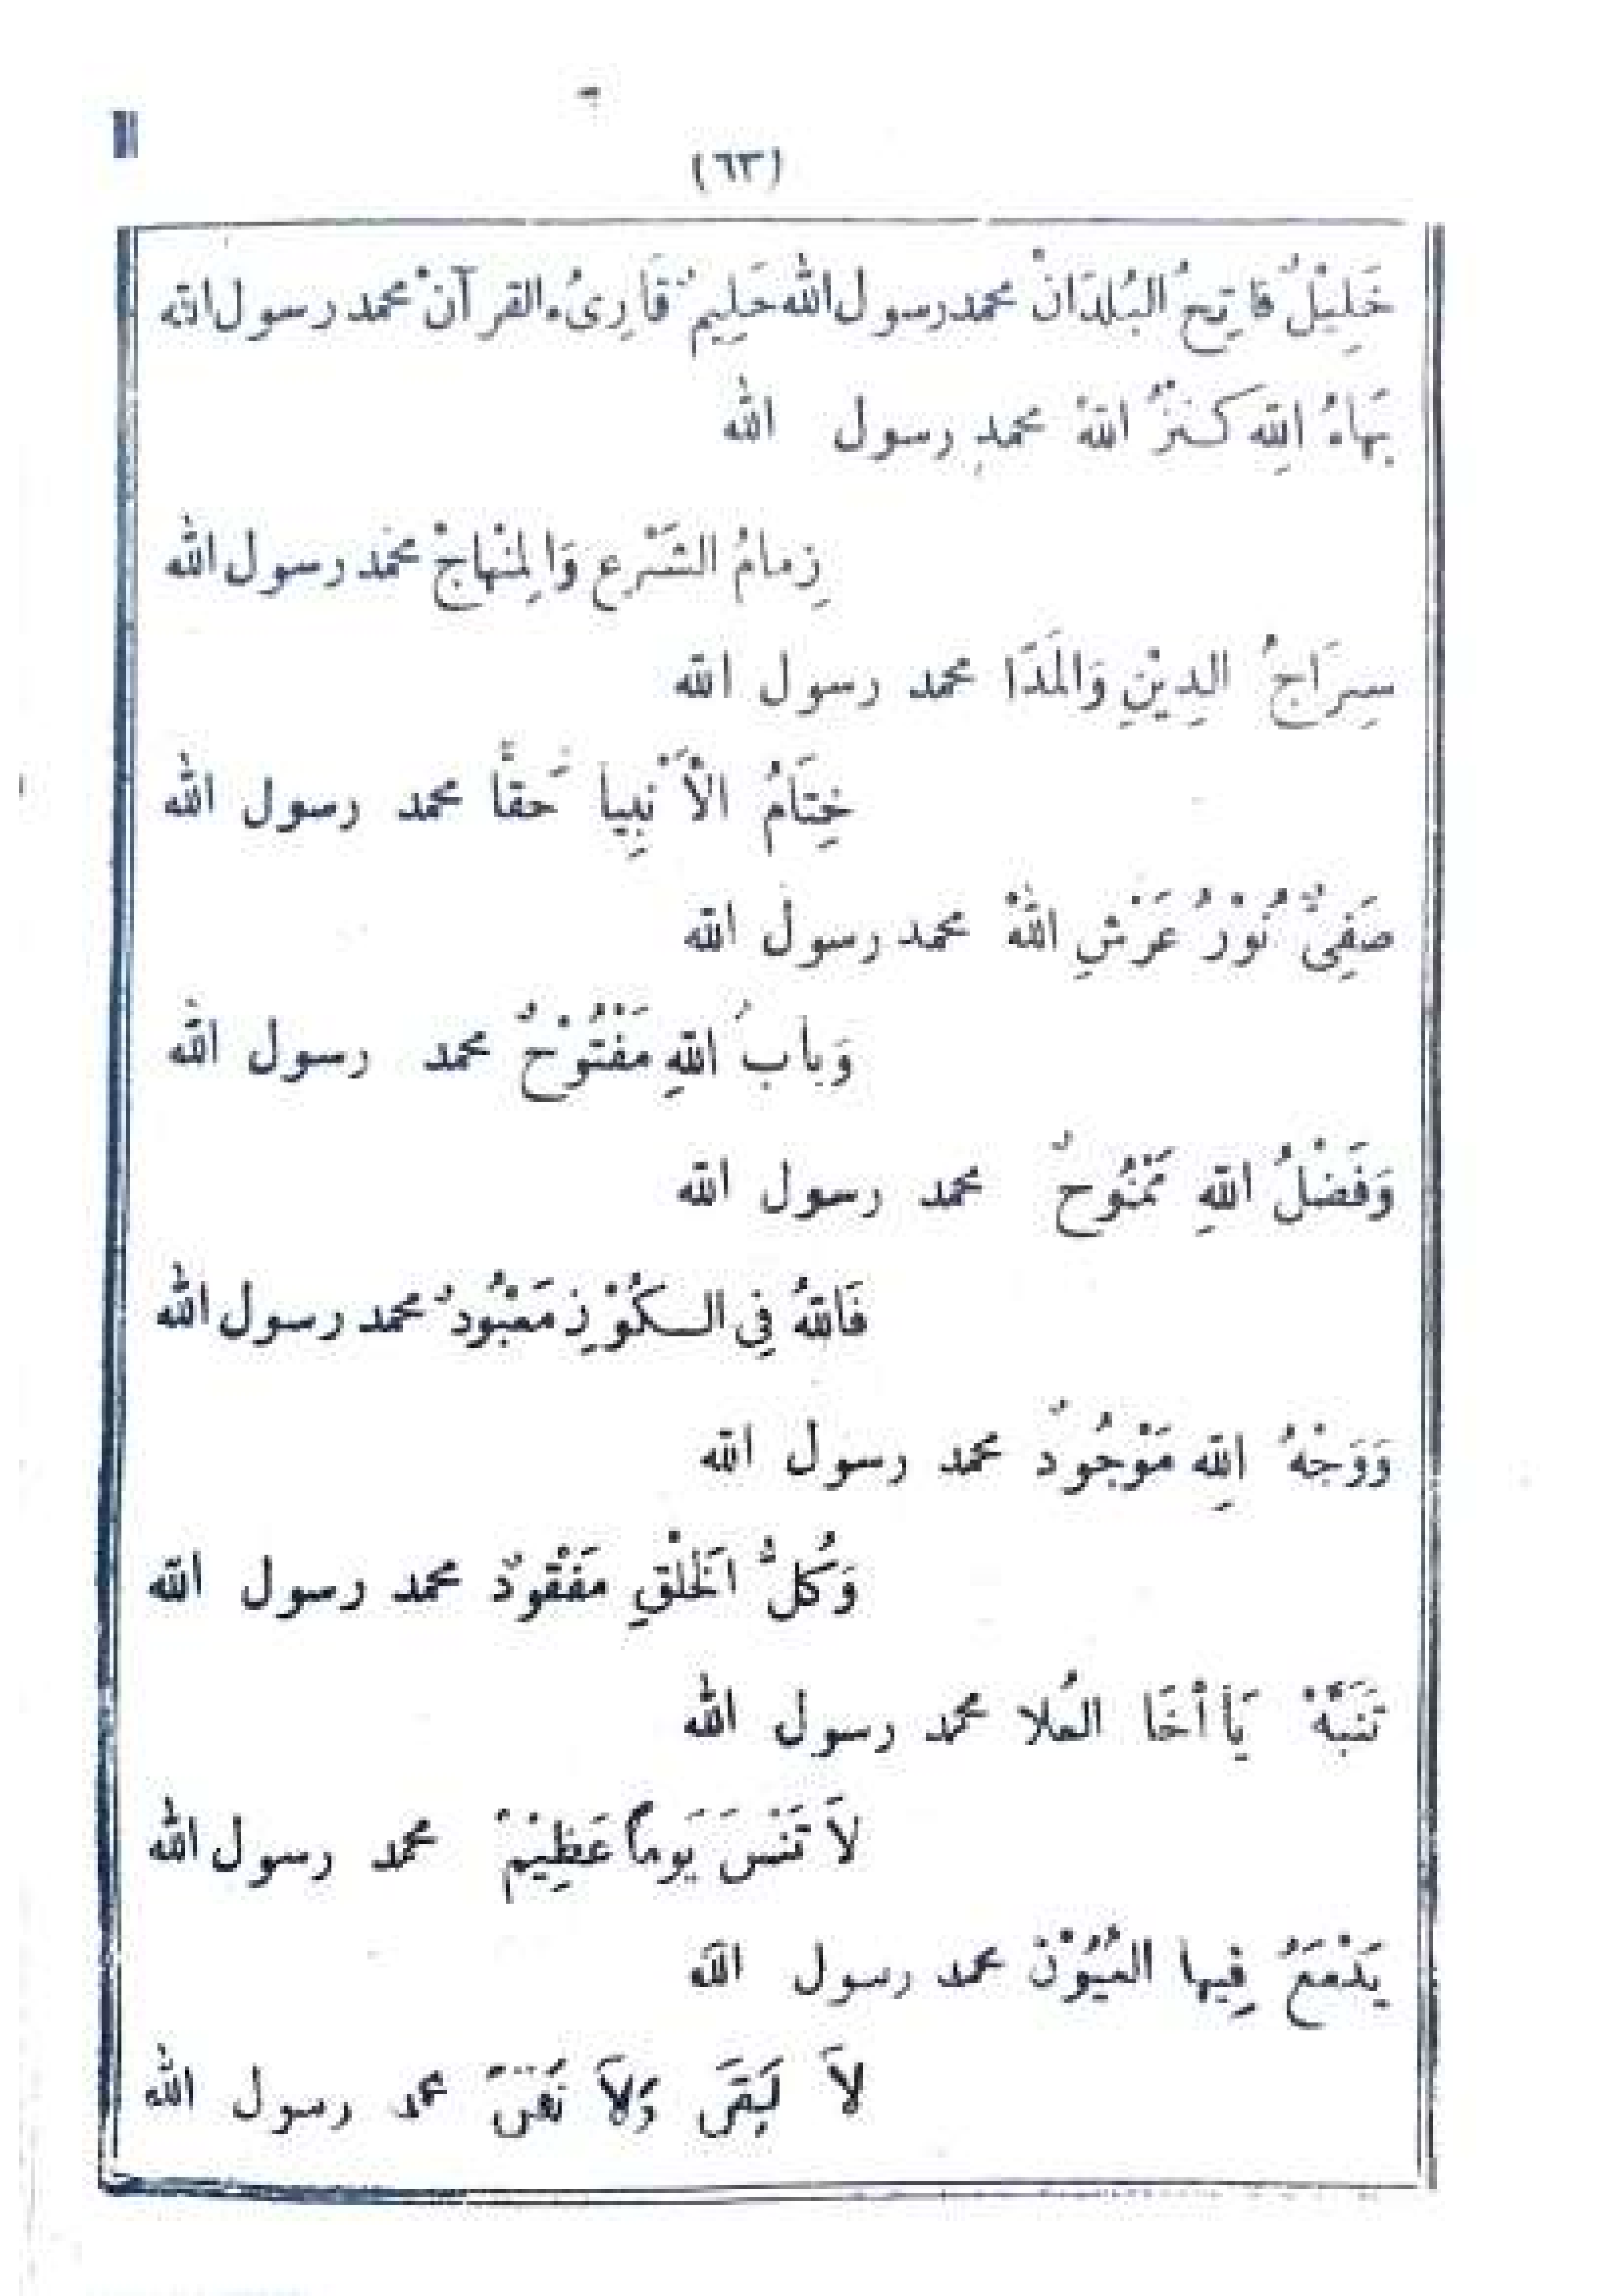 (٦٣)
خَلِيْلٌ فَاتِحُ البُلدَانْ محمد رسول الله حَلِيمٌ قَارِىُٔ القرآنْ محمد رسول الله
بَهاءُ اللهِ كَنزُ اللهْ محمد رسول الله
زِمامُ الشَّرْعِ وَالمِنْهاجْ محمد رسول الله
سِرَاجُ الدِيْنِ وَالمَدَا محمد رسول الله
خِتَامُ الْأَنْبِيا حَقاً محمد رسول الله
صَفِىٌّ نُوْرُ عَرْشِ اللهْ محمد رسول الله
وَبابُ اللهِ مَفْتُوْحٌ محمد رسول الله
وَفَضْلُ اللهِ مَمْنُوحٌ محمد رسول الله
فَاللهُ فِى الكُوْنِ مَعْبُودٌ محمد رسول الله
وَوَجْهُ اللهِ مَوْجُودٌ محمد رسول الله
وَكُلُّ الَخلْقِ مَفْقودٌ محمد رسول الله
تَنَبَّهْ يَا أخَا العُلا محمد رسول الله
لاَ تَنْسَ يَوماً عَظِيْمْ محمد رسول الله
يَدْمَعُ فِيها العُيُوْنْ محمد رسول الله
لاَ وَلاَ محمد رسول الله